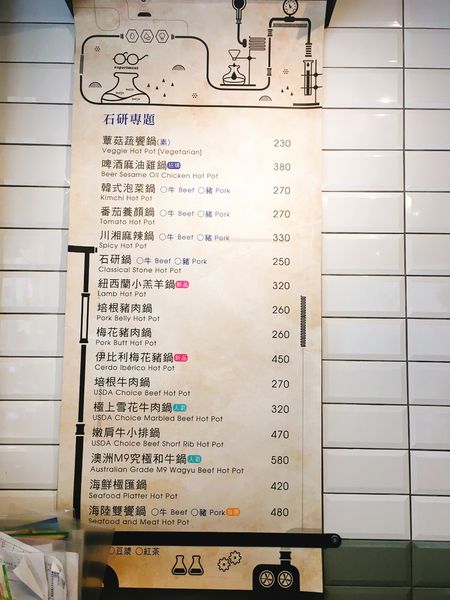 experiment
石研專題
蕈菇蔬饗鍋(素) 230
Veggie Hot Pot (Vegetarian)
啤酒麻油雞鍋 招牌 380
Beer Sesame Oil Chicken Hot Pot
韓式泡菜鍋 ○牛 Beef ○豬 Pork 270
Kimchi Hot Pot
番茄養顏鍋 ○牛 Beef ○豬 Pork 270
Tomato Hot Pot
川湘麻辣鍋 ○牛 Beef ○豬 Pork 330
Spicy Hot Pot
石研鍋 ○牛 Beef ○豬 Pork 250
Classical Stone Hot Pot
紐西蘭小羔羊鍋 新品 320
Lamb Hot Pot
培根豬肉鍋 260
Pork Belly Hot Pot
梅花豬肉鍋 260
Pork Butt Hot Pot
伊比利梅花豬鍋 新品 450
Cerdo Ibérico Hot Pot
培根牛肉鍋 270
USDA Choice Beef Hot Pot
極上雪花牛肉鍋 人氣 320
USDA Choice Marbled Beef Hot Pot
嫩肩牛小排鍋 470
USDA Choice Beef Short Rib Hot Pot
澳洲M9究極和牛鍋 人氣 580
Australian Grade M9 Wagyu Beef Hot Pot
海鮮極匯鍋 420
Seafood Platter Hot Pot
海陸雙饗鍋 ○牛 Beef ○豬 Pork 480
Seafood and Meat Hot Pot
○豆漿 ○紅茶